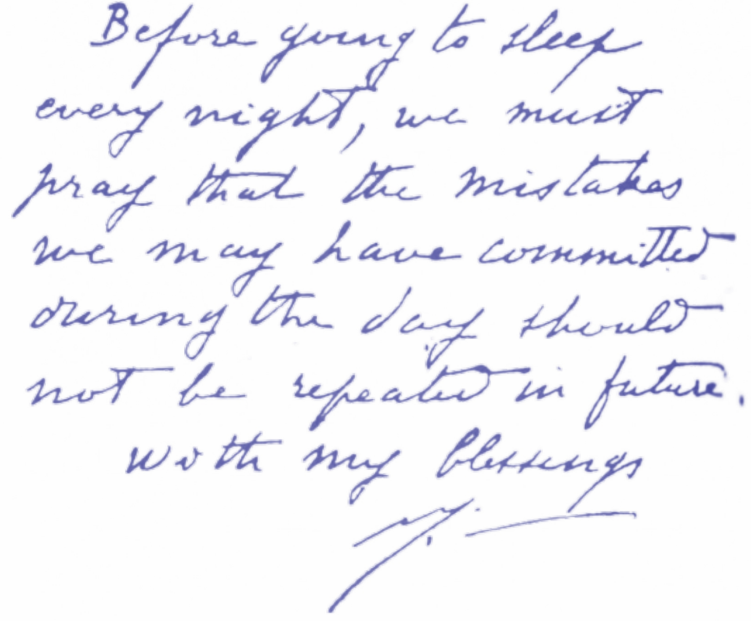 Before going to sleep
every night, we must
pray that the mistakes
we may have committed
during the day should
not be repeated in future.
with my blessings